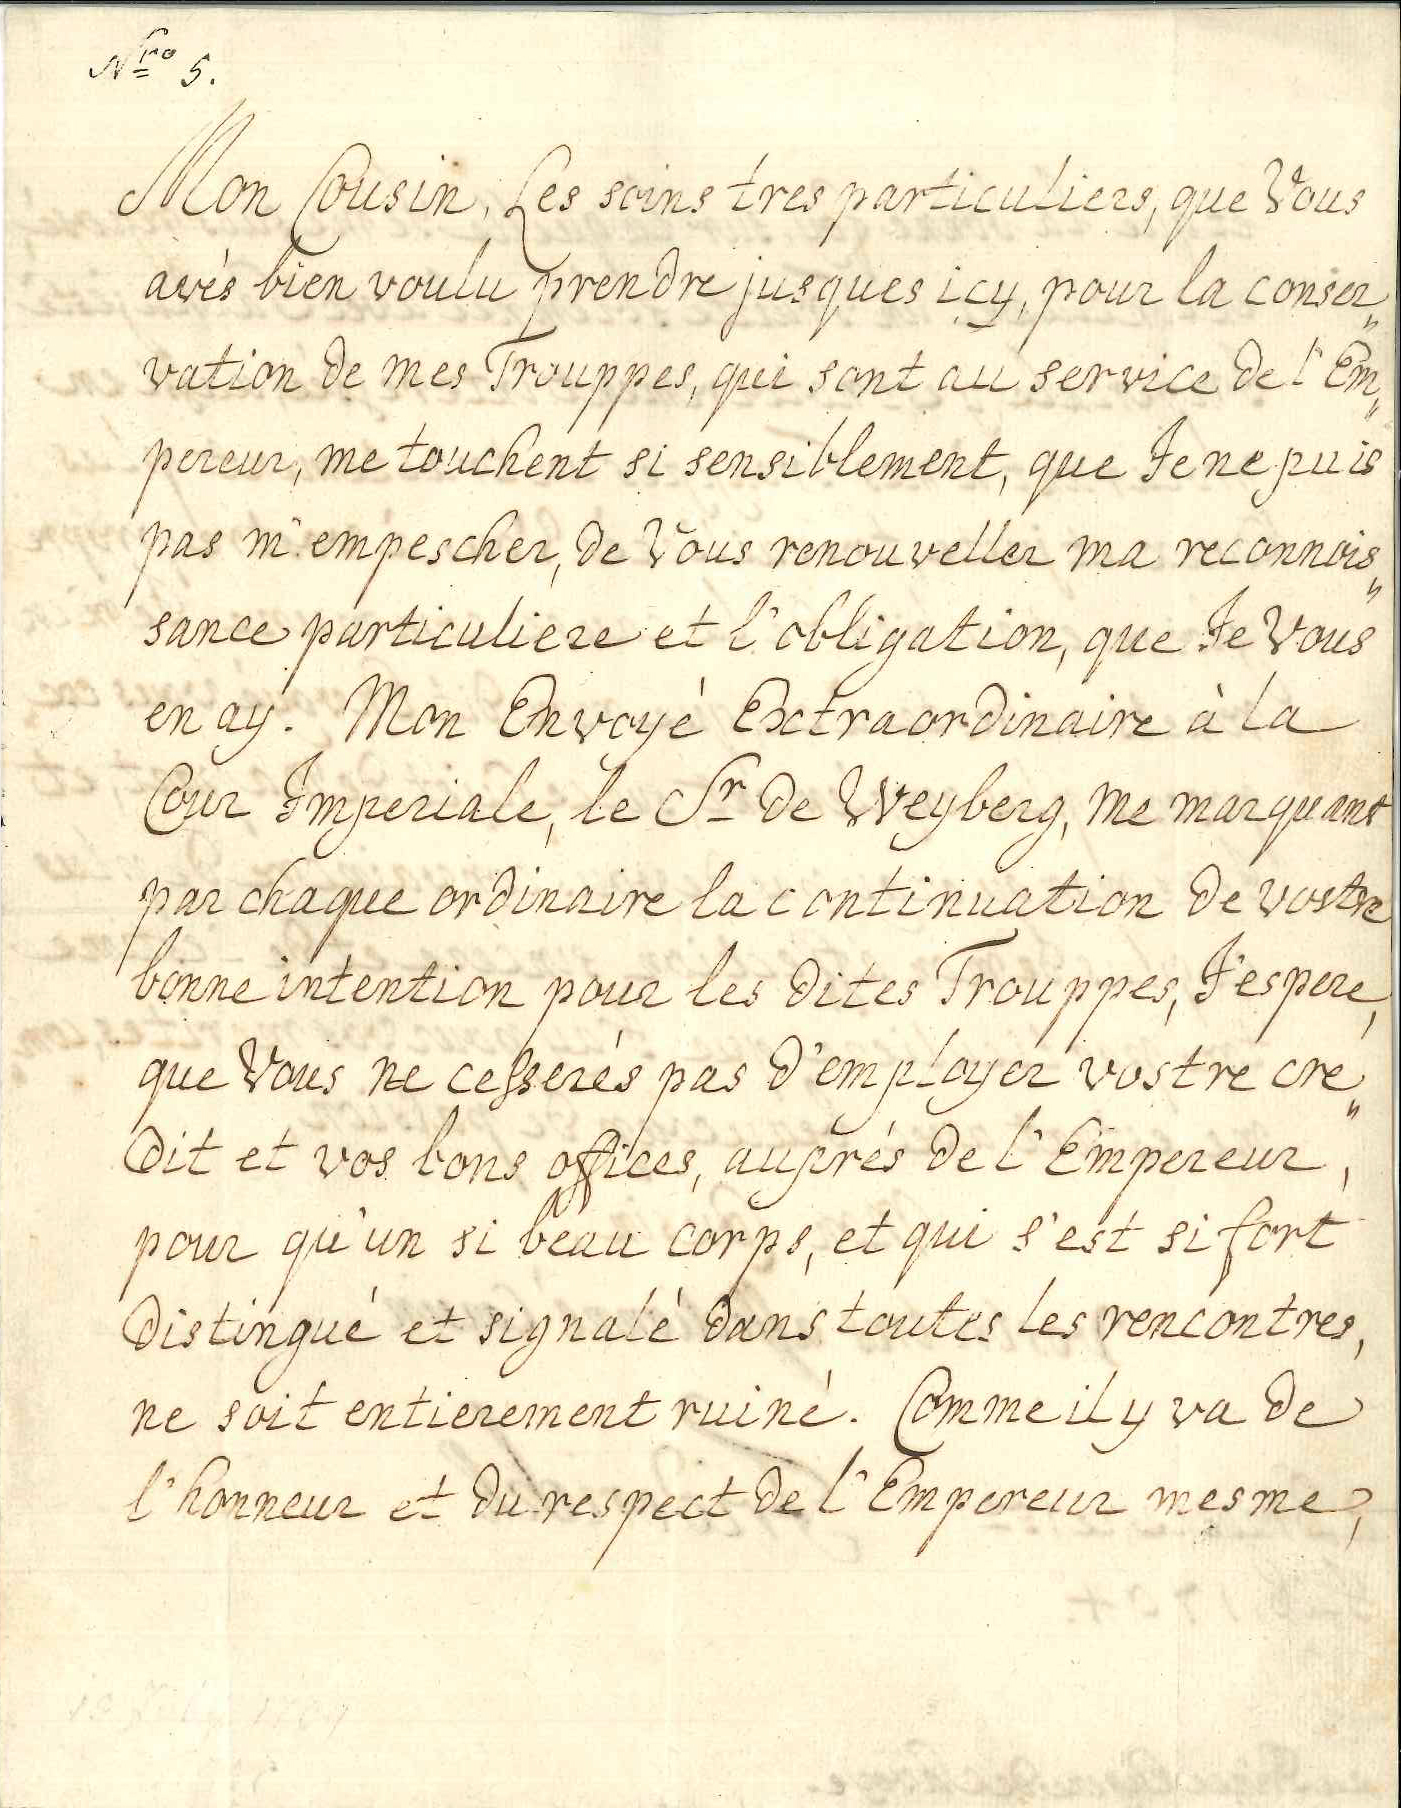 Nro 5.
Mon Cousin. Les soins tres particuliers, que Vous
avés bien voulu prendre jusques icy, pour la conser„
vation de mes Trouppes, qui sont au service de l'Em„
pereur, me touchent si sensiblement, que Je ne puis
pas m'empescher, de Vous renouveller ma reconnois„
sance particuliere et l'obligation, que Je Vous
en ay. Mon Envoyè Extraordinaire à la
Cour Imperiale, le Sr de Weyberg, me marquant
par chaque ordinaire la continuation de vostre
bonne intention pour les dites Trouppes, J'espere,
que Vous ne cesserés pas d'employer vostre cre„
dit et vos bons offices, auprés de l'Empereur,
pour qu'un si beau corps, et qui s'est si fort
distingué et signalè dans toutes les rencontres,
ne soit entierement ruiné. Comme il y va de
l'honneur et du respect de l'Empereur mesme,